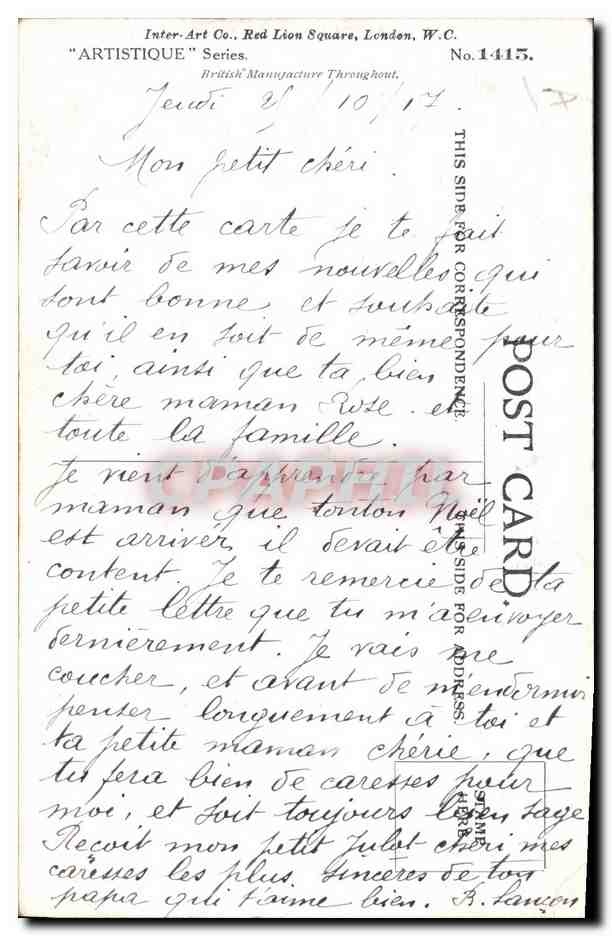 Inter-Art Co., Red Lion Square, London, W.C.
"ARTISTIQUE" Series. No. 1415.
British Manufacture Throughout.
Jeudi 25/10/17.
Mon petit chéri.
Par cette carte je te fait
savoir de mes nouvelles qui
sont bonne et souhaite
qu'il en soit de même pour
toi, ainsi que ta bien
chère maman Rose et
toute la famille.
Je vient d'apprendre par
maman que tonton Noël
est arrivér il devait être
content. Je te remercie de ta
petite lettre que tu m'a envoyer
dernièrement. Je vais me
coucher, et avant de m'endormir
penser longuement à toi et
ta petite maman chérie, que
tu fera bien de caresses pour
moi, et soit toujours bien sage
Reçoit mon petit Julot chéri mes
caresses les plus sincères de ton
papa qui t'aime bien. R. Lançon
THIS SIDE FOR CORRESPONDENCE.
THIS SIDE FOR ADDRESS.
POST CARD.
STAMP
HERE
CPAPHIL